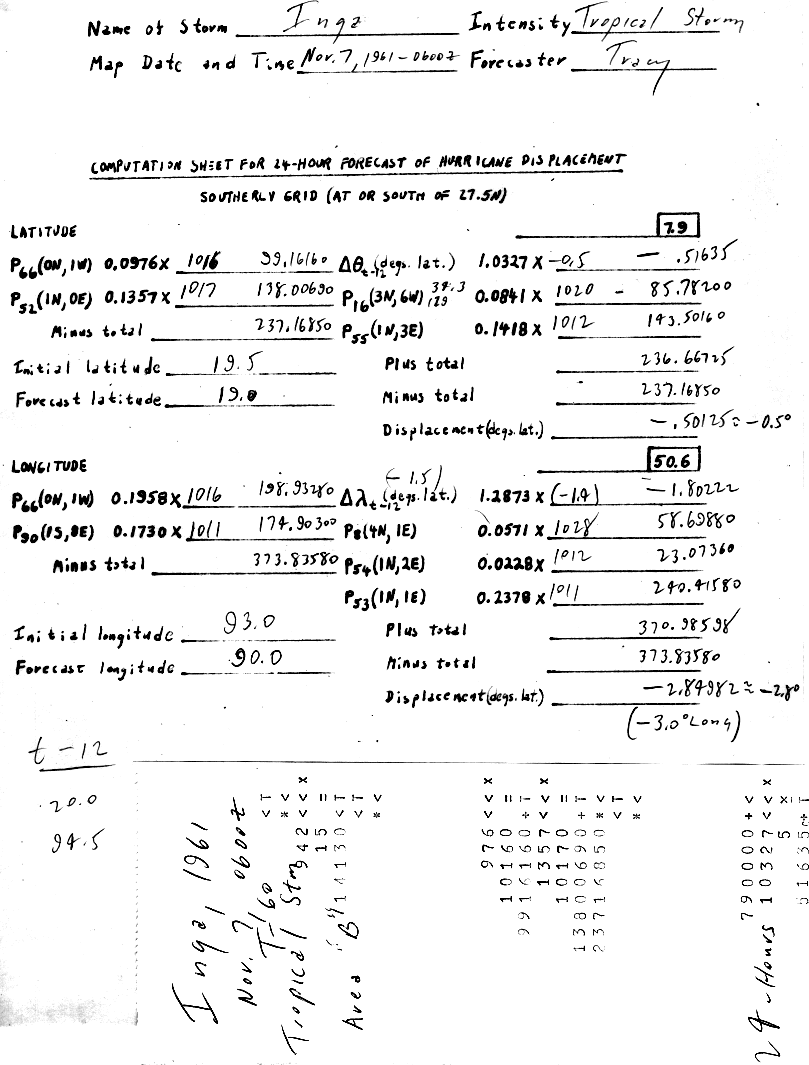 Name of Storm Inga Intensity Tropical Storm
Map Date and Time Nov. 7, 1961 - 0600Z Forecaster Tracy
COMPUTATION SHEET FOR 24-HOUR FORECAST OF HURRICANE DISPLACEMENT
SOUTHERLY GRID (AT OR SOUTH OF 27.5N)
LATITUDE 79
P66(0N, 1W) 0.0976 X 1016 99.16160 Δθt-12 (degs. lat.) 1.0327 X -0.5 - .51635
P52(1N, 0E) 0.1357 X 1017 138.00690 P16(3N, 6W) 0.0841 X 1020 - 85.78200
Minus total 237.16850 P55(1N, 3E) 0.1418 X 1012 143.50160
Initial latitude 19.5 Plus total 236.66725
Forecast latitude 19.0 Minus total 237.16850
Displacement (degs. lat.) -.50125 ≈ -0.5°
LONGITUDE 50.6
(-1.5)
P66(0N, 1W) 0.1958 X 1016 198.93280 Δλt-12 (degs. lat.) 1.2873 X (-1.4) -1.80222
P90(1S, 8E) 0.1730 X 1011 174.90300 P8(4N, 1E) 0.0571 X 1028 58.69880
Minus total 373.83580 P54(1N, 2E) 0.0228 X 1012 23.07360
P53(1N, 1E) 0.2378 X 1011 240.41580
Initial longitude 93.0 Plus total 370.98598
Forecast longitude 90.0 Minus total 373.83580
Displacement (degs. lat.) -2.84982 ≈ -2.8°
(-3.0° Long)
t-12
20.0
94.5
Inga, 1961
Nov. 7 0600Z
T=160
Tropical Stm
Area "B"
942 < < X
15 =
14130 < T
976 < < X
10160 =
9916160 + T
1357 < < X
10170 =
13800690 + T
23716850 * <
7900000 + <
10327 < < X
5 =
51635 - T
24-Hours